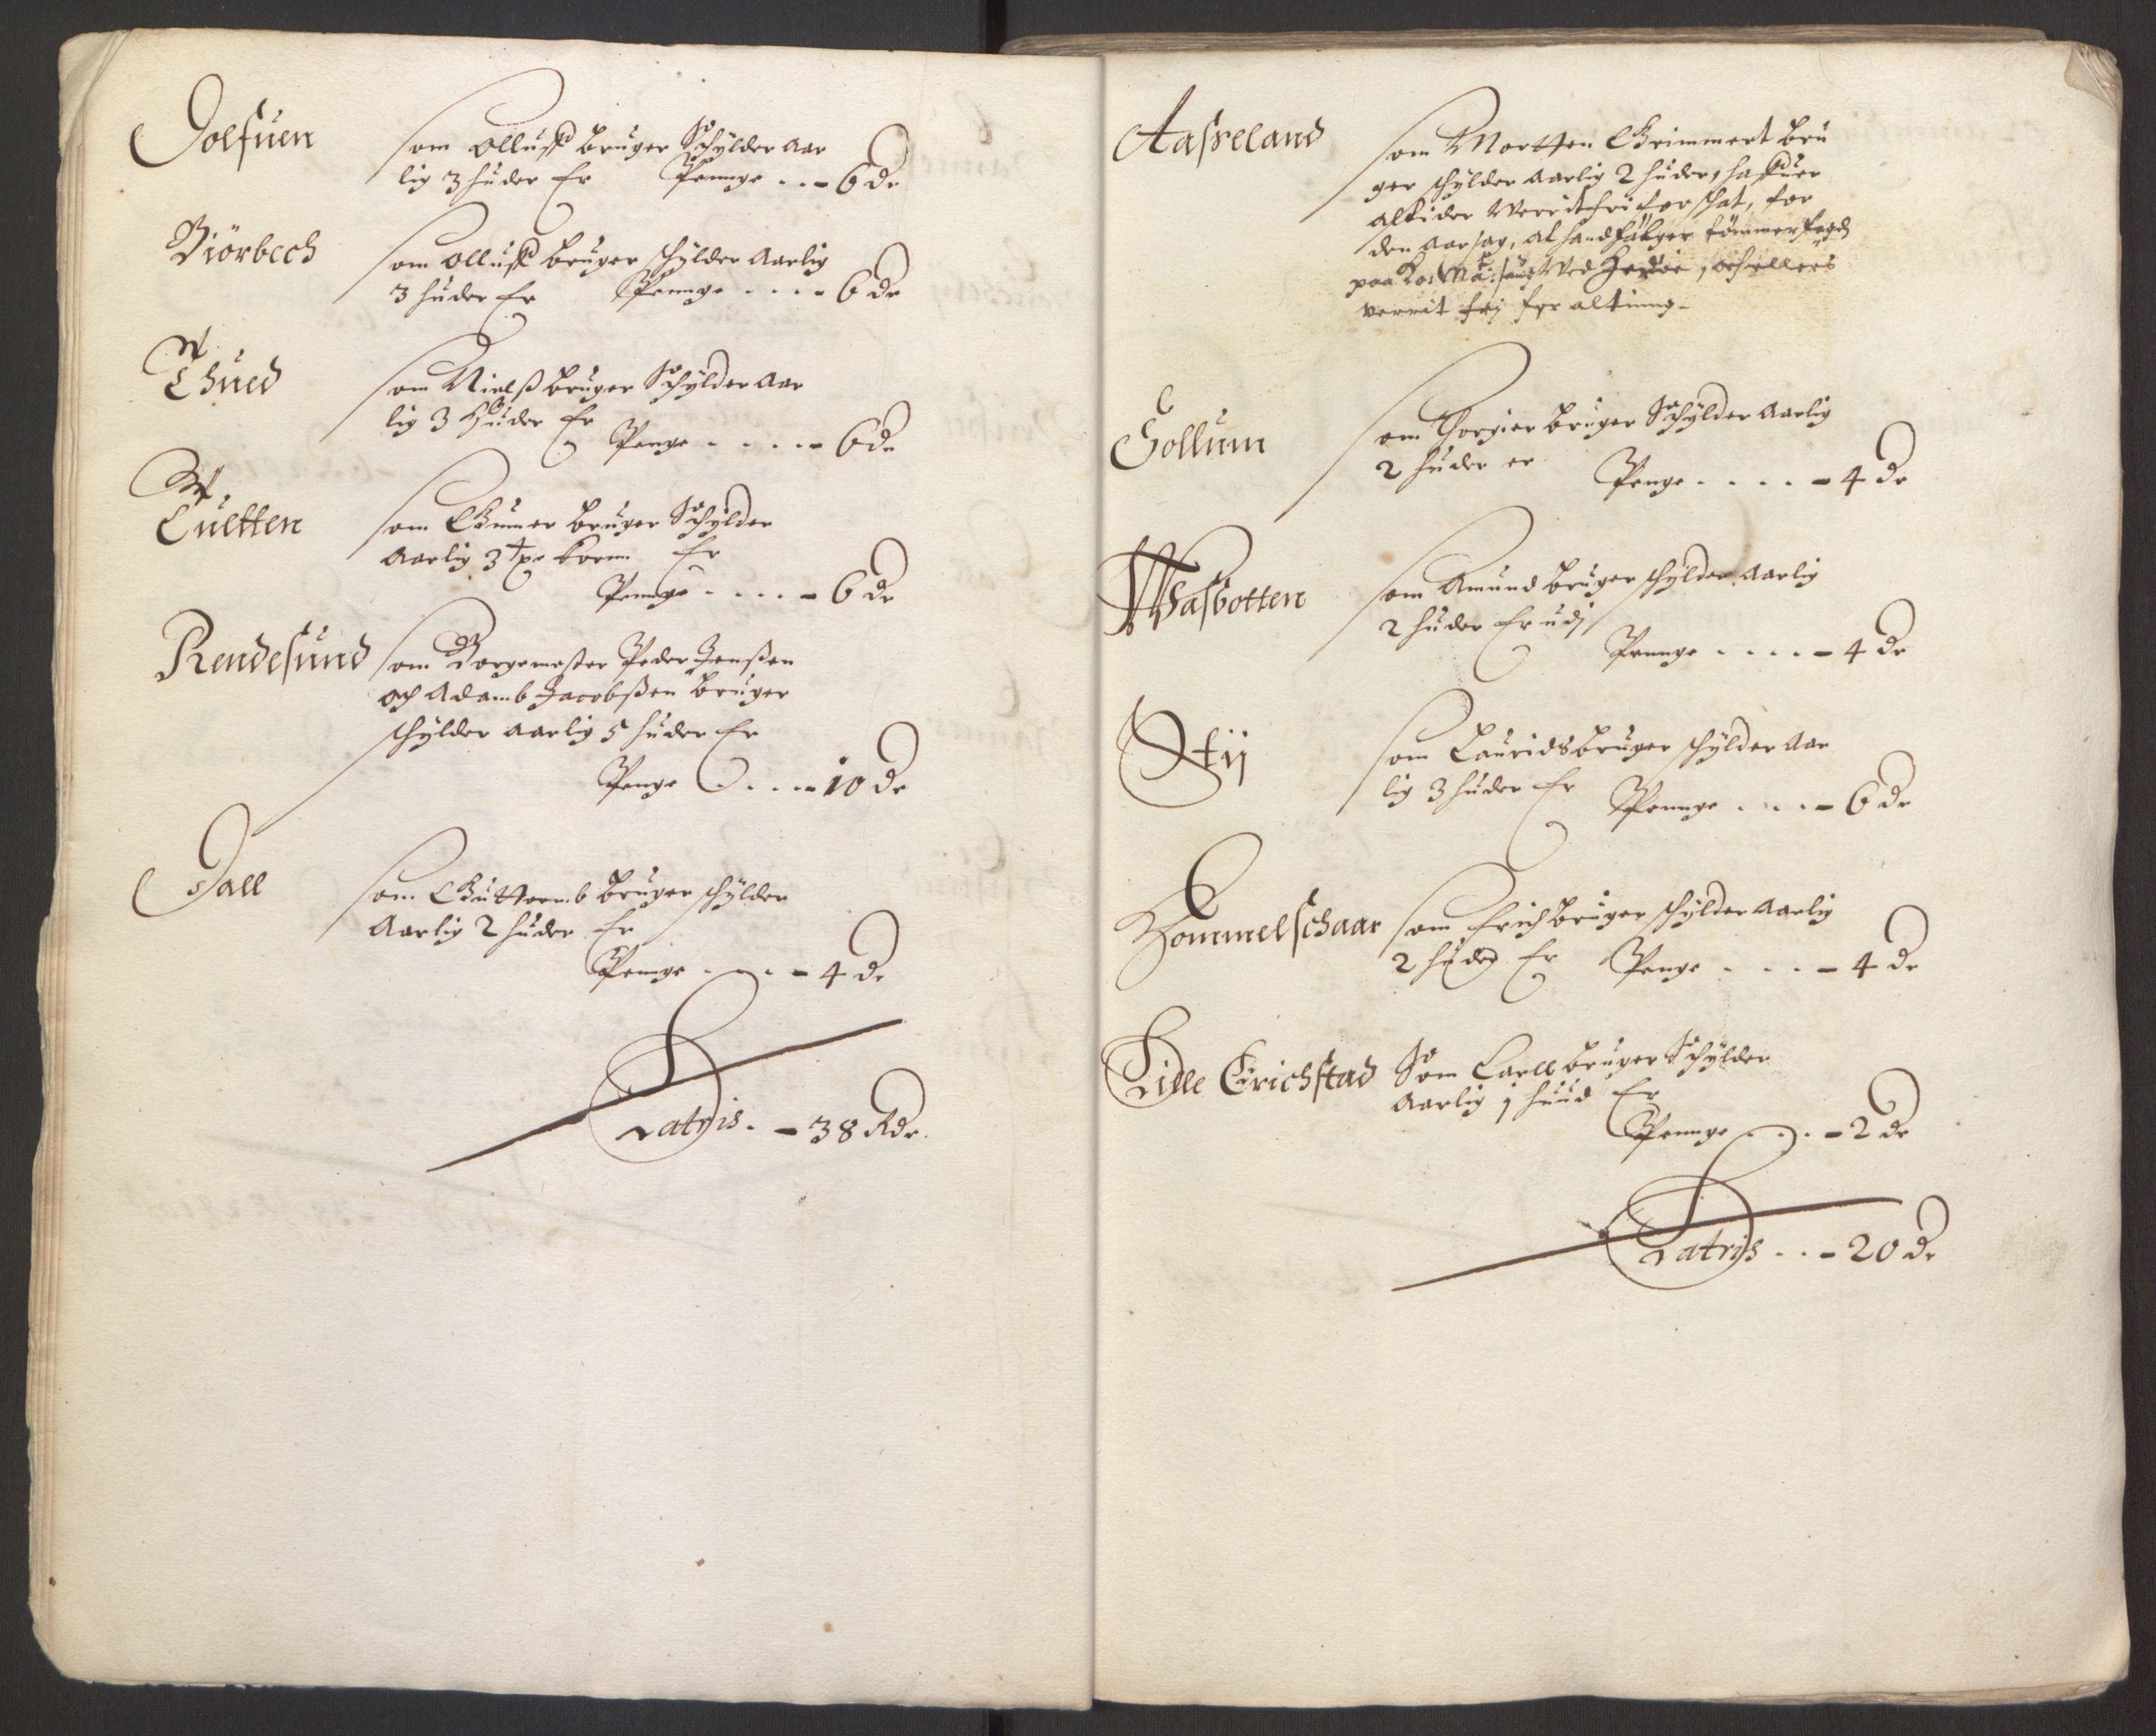 Dolfuen som Olluff bruger Schylder Aar
lig 3 huder Er Pennge . . - 6 dr
Biörbech som Olluff bruger schylder Aarlig
3 huder Er Pennge . . . . 6 dr
Thued som Nielß bruger Schylder Aar
lig 3 Huder Er
Penge . . . . - 6 dr
Tuetten som Gunner bruger Schylder
Aarlig 3 tpr korn Er
Pennge . . . . - 6 dr
Rendesund som Borgemester Peder Jenßen
och Adamb Jacobßen bruger
schylder aarlig 5 huder Er
Penge . . . . - 10 dr
Dall som Guttormb bruger schylder
Aarlig 2 huder Er
Pennge . . . - 4 dr
Lateris . - 38 Rdr.
Aasseland som Mortten Grimmert bru
ger schylder aarlig 2 huder, haffuer
altider Werrit fri for schat, for
den aarsag, at hand tömmer
paa Ko: Ma: saug Wed och ellers
verrit frj for altinng -
Gollum som Thorgier bruger Schylder Aarlig
2 huder er
Penge . . . . - 4 dr
Wasbotten som Amund bruger schylder Aarlig
2 huder Er udj
Pennge . . . . - 4 dr
Stij som Lauridß bruger schylder Aar
lig 3 huder Er Pennge . . . - 6 dr
Hommelschaar som Erich bruger schylder Aarlig
2 huder Er Penge . . . - 4 dr
Lille Erichstad Som Carll bruger Schylder
Aarlig 1 huud Er
Pennge . . . - 2 dr
Lateris . . - 20 dr